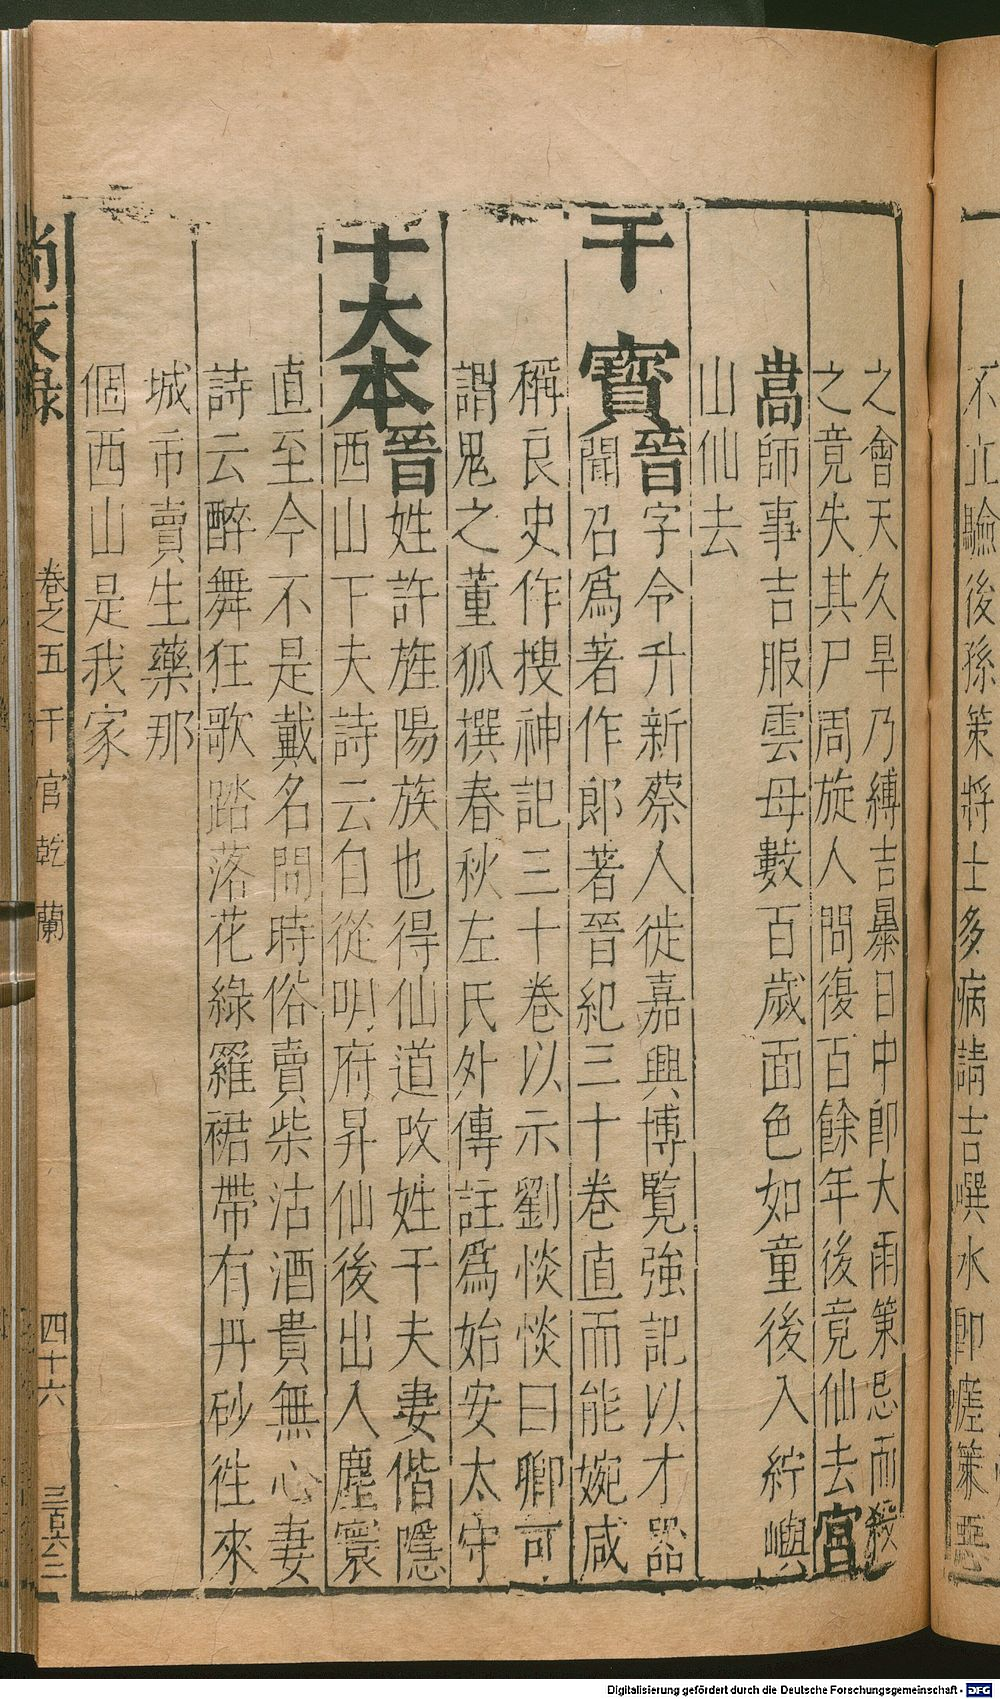 不立驗後孫策將士多病請吉噀水即瘥策惡
之會天久旱乃縛吉暴日中卽大雨策忌而殺
之竟失其尸周旋人間復百餘年後竟仙去宮
嵩師事吉服雲母數百歲面色如童後入紵嶼
山仙去
干寶晉字令升新蔡人徙嘉興博覽強記以才器
聞召爲著作郎著晉紀三十卷直而能婉咸
稱良史作搜神記三十卷以示劉惔惔曰卿可
謂鬼之董狐撰春秋左氏外傳註爲始安太守
干大本晉姓許旌陽族也得仙道改姓干夫妻偕隱
西山下夫詩云自從明府昇仙後出入塵寰
直至今不是戴名問時俗賣柴沽酒貴無心妻
詩云醉舞狂歌踏落花綠羅裙帶有丹砂徃來
城市賣生藥那
個西山是我家
尚友錄 卷之五 干官乾蘭 四十六 三百六二
Digitalisierung gefördert durch die Deutsche Forschungsgemeinschaft - DFG